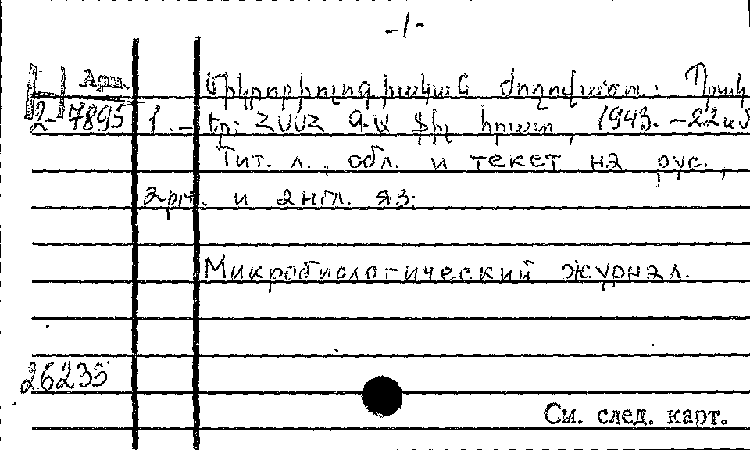 -1-
Арм. Միկրոբիոլոգիական ժողովածու. Պրակ
2-7895 1. - Եր: ՀՍՍՀ ԳԱ ֆիլ հրատ, 1943. - 22 սմ
Тит. л., обл. и текст на рус.,
арм. и англ. яз.
Микробиологический журнал.
26235
См. след. карт.